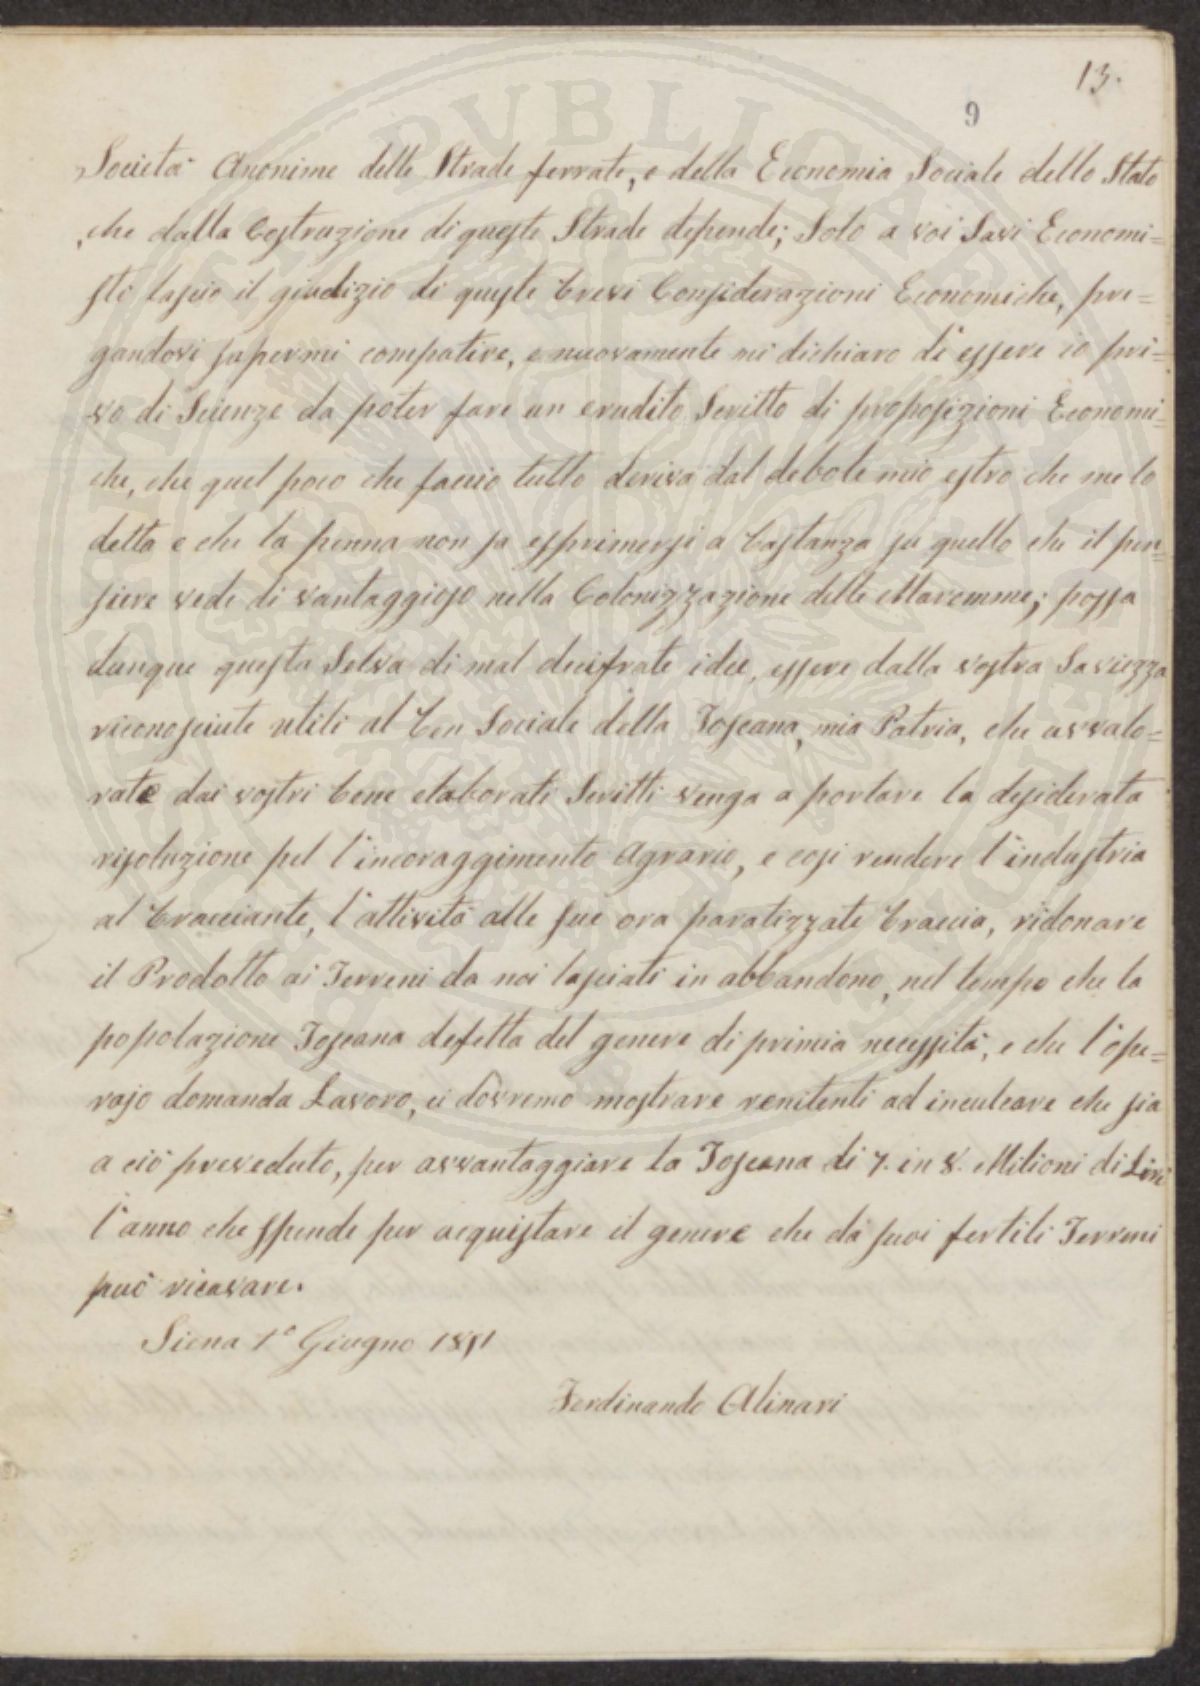 13.
9
Società Anonime delle Strade ferrate, e della Economia Sociale dello Stato
che dalla Costruzione di queste Strade depende; Solo a voi Savi Economi=
sti lascio il giudizio di queste brevi Considerazioni Economiche, pre=
gandovi sapermi compatire, e nuovamente mi dichiaro di essere io pri=
vo di Scienze da poter fare un erudito Scritto di proposizioni Economi=
che, che quel poco che faccio tutto deriva dal debole mio estro che me lo
detta e che la penna non sa esprimersi a bastanza su quello che il pen=
siere vede di vantaggioso nella Colonizzazione delle Maremme; possa
dunque questa Selva di mal decifrate idee, essere dalla vostra Saviezza
riconosciute utili al ben Sociale della Toscana, mia Patria, che avvalo=
rate dai vostri bene elaborati Scritti venga a portare la desiderata
risoluzione pel l'incoraggimento Agrario, e così rendere l'industria
al bracciante, l'attività alle sue ora paralizzate braccia, ridonare
il Prodotto ai Terreni da noi lasciati in abbandono, nel tempo che la
popolazione Toscana defetta del genere di primia necessità, e che l'ope=
rajo domanda Lavoro, ci dovremo mostrare renitenti ad inculcare che sia
a ciò proveduto, per avvantaggiare la Toscana di 7. in 8. Milioni di Lire
l'anno che spende per acquistare il genere che da suoi fertili Terreni
può ricavare.
Siena 1º Giugno 1851
Ferdinando Alinari
PVBLICAE